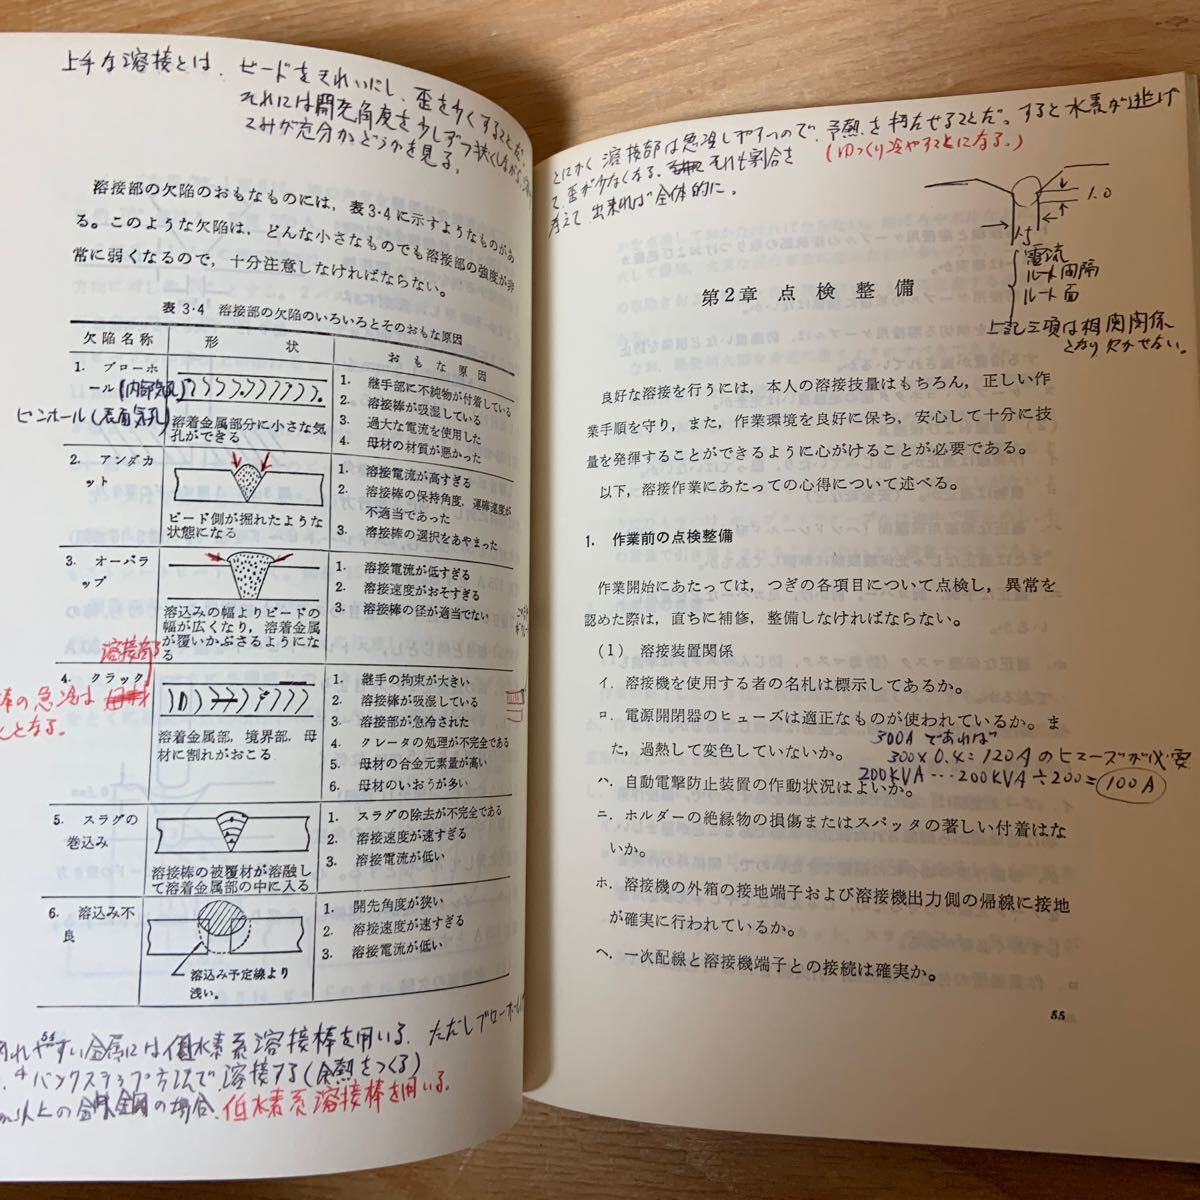 上手な溶接とは、ビードをきれいにし、歪を少くすることだ。
それには開先角度を少しずつ狭くしながら、
てみが充分かどうかを見る。
溶接部の欠陥のおもなものには，表3・4に示すようなものがあ
る。このような欠陥は，どんな小さなものでも溶接部の強度が非
常に弱くなるので，十分注意しなければならない。
表 3・4 溶接部の欠陥のいろいろとそのおもな原因
欠陥名称 形状 おもな原因
1. ブローホール
(内部気孔)
ピンホール(表面気孔)
溶着金属部分に小さな気
孔ができる
1. 継手部に不純物が付着している
2. 溶接棒が吸湿している
3. 過大な電流を使用した
4. 母材の材質が悪かった
2. アンダカ
ット
ビード側が掘れたような
状態になる
1. 溶接電流が高すぎる
2. 溶接棒の保持角度，運棒速度が
不適当であった
3. 溶接棒の選択をあやまった
3. オーバラ
ップ
溶込みの幅よりビードの
幅が広くなり，溶着金属
が覆いかぶさるようにな
る
1. 溶接電流が低すぎる
2. 溶接速度がおそすぎる
3. 溶接棒の径が適当でない
溶接部
棒の急冷は
となる。
4. クラック
溶着金属部，境界部，母
材に割れがおこる
1. 継手の拘束が大きい
2. 溶接棒が吸湿している
3. 溶接部が急冷された
4. クレータの処理が不完全である
5. 母材の合金元素量が高い
6. 母材のいおうが多い
5. スラグの
巻込み
溶接棒の被覆材が溶融し
て溶着金属部の中に入る
1. スラグの除去が不完全である
2. 溶接速度が速すぎる
3. 溶接電流が低い
6. 溶込み不
良
溶込み予定線より
浅い。
1. 開先角度が狭い
2. 溶接速度が速すぎる
3. 溶接電流が低い
54
れやすい金属には低水素系溶接棒を用いる。ただしブローホール
バックステップ方法で溶接する(余熱をつくる)
以上の鋼の場合、低水素系溶接棒を用いる。
とにかく溶接部は急冷しやすいので、予熱を持たせることだ。すると水素が逃げ
て、歪が少なくなる。それも割合を
(ゆっくり冷やすことになる。)
考えて出来れば全体的に。
1.0
1.5
電流
ルート間隔
ルート面
上記三項は相関関係
となり欠かせない。
第2章 点検整備
良好な溶接を行うには，本人の溶接技量はもちろん，正しい作
業手順を守り，また，作業環境を良好に保ち，安心して十分に技
量を発揮することができるように心がけることが必要である。
以下，溶接作業にあたっての心得について述べる。
1. 作業前の点検整備
作業開始にあたっては，つぎの各項目について点検し，異常を
認めた際は，直ちに補修，整備しなければならない。
(1) 溶接装置関係
イ．溶接機を使用する者の名札は標示してあるか。
ロ．電源開閉器のヒューズは適正なものが使われているか。ま
た，過熱して変色していないか。
300Aであれば
300×0.4=120Aのヒューズが必要
200KVA…200KVA÷200=100A
ハ．自動電撃防止装置の作動状況はよいか。
ニ．ホルダーの絶縁物の損傷またはスパッタの著しい付着はな
いか。
ホ．溶接機の外箱の接地端子および溶接機出力側の帰線に接地
が確実に行われているか。
ヘ．一次配線と溶接機端子との接続は確実か。
55